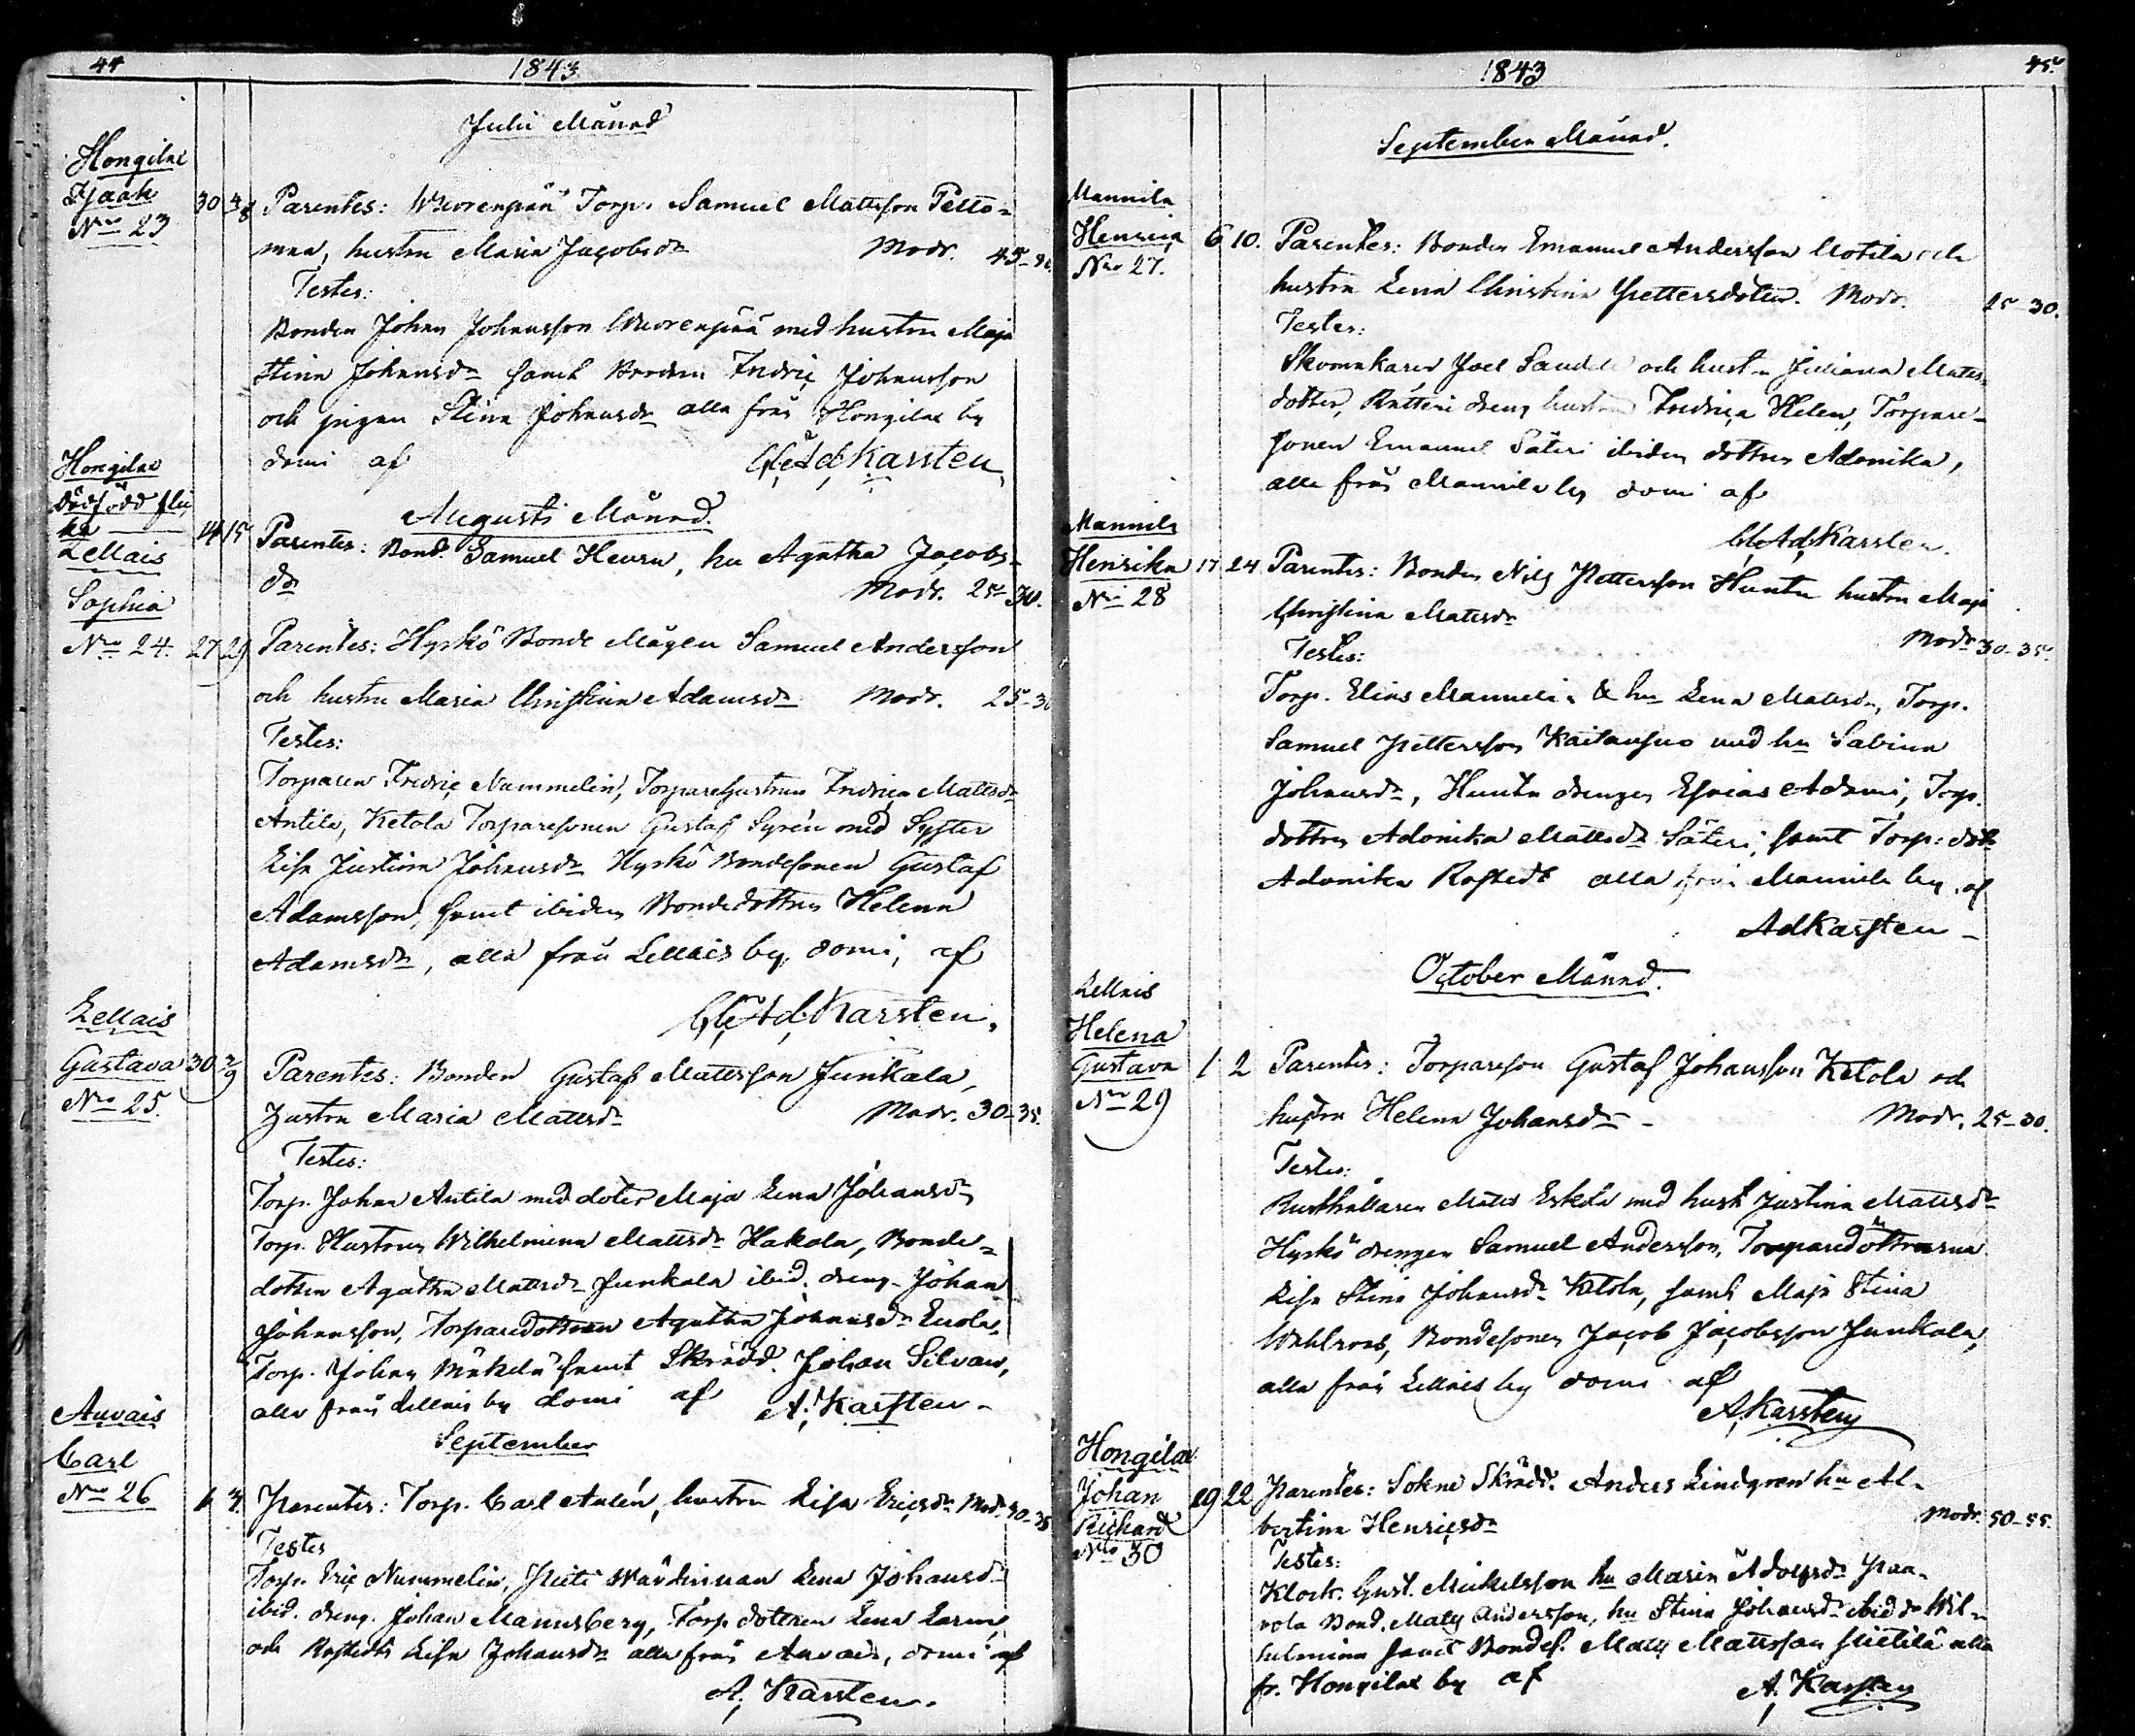 44
1843
Julii Månad
Hongilax
Isaak
Nro 23
30 4/8 Parentes: Wuorenpää Torp. Samuel Mattsson Pelto-
maa, hustru Maria Jacobsdr Modr. 45-50.
Testes:
Bonden Johan Johansson Wuorenpää med hustru Maja
Stina Johansdr samt Bonden Fredric Johansson
och pigan Stina Johansdr alla från Hongilax by
domi af Karsten
Augusti Månad.
Hongilax
dödfödd flic
ka
14 15 Parentes: Bond. Samuel Heurn, hu Agatha Jacobs-
dr Modr. 25-30.
Lellais
Sophia
Nro 24. 27 29 Parentes: Hyrkö Bonde Mågen Samuel Andersson
och hustru Maria Christina Adamsdr Modr. 25-30
Testes:
Torparen Fredric Nummelin, Torparehustrun Fredrica Mattsdr
Antila, Ketola Torparesonen Gustaf Syrén med Syster
Lisa Justina Johansdr Hyrkö Bondesonen Gustaf
Adamsson, samt ibidem Bondedottren Helena
Adamsdr, alla från Lellais by, domi, af
Karsten.
Lellais
Gustava
Nro 25.
30 2/9 Parentes: Bonden Gustaf Mattsson Junkala,
hustru Maria Mattsdr Modr. 30-35.
Testes:
Torp. Johan Antila med doter Maja Lena Johansdr
Torp. Hustrun Wilhelmina Mattsdr Hakola, Bonde-
dotren Agatha Mattsdr Junkala ibid. dreng. Johan
Johansson, Torparedottren Agatha Johansdr
Torp. Johan Mäkelä samt Skrädd. Johan Silvan,
alla från Lellais by domi af A. Karsten
September
Auvais
Carl
Nro 26
1 3. Parentes: Torp. Carl Aulén, hustru Lisa Ericsdr Modr. 30-35
Testes
Torp. Eric Nummelin, Lena Johansdr
ibid. dreng. Johan Mannsberg, Torp dottren Lena
och Rostedts Lisa Johansdr alla från Auvais, domi af
A. Karsten.
45.
1843
September Månad.
Mannila
Henrica
Nro 27.
6 10. Parentes: Bonden Emanuel Andersson Uotila och
hustru Lena Christina Pettersdotter. Modr. 25-30.
Testes:
Skomakaren Joel Sandell och hustru Juliana Matts-
dotter, Rätteri dreng hustrun Fredrica Helen, Torpare-
sonen Emanuel Säteri ibidem dottren Adonika,
alla från Mannila by domi af
Karsten.
Mannila
Henrika
Nro 28
17 24 Parentes: Bonden Nils Pettersson Huntu hustru Maja
Christina Mattsdr Modr 30-35.
Testes:
Torp. Elias Mannelin & hu Lena Mattsdr, Torp.
Samuel Pettersson Kaitansuo med hu Sabina
Johansdr, Huntu drengen Esaias Adami, Torp.
dottren Adonika Mattsdr Säteri, samt Torp: dotr
Adonika Rostedt alla från Mannila by, af
AdKarsten
October Månad.
Lellais
Helena
Gustava
Nro 29
1 2 Parentes: Torpareson Gustaf Johansson Ketola och
hustru Helena Johansdr Modr. 25-30.
Testes:
Rusthållaren Matts Eskola med hustr Justina Mattsdr
Hyrkö drengen Samuel Andersson, Torparedöttrarna
Lisa Stina Johansdr Ketola, samt Maja Stina
Wahlroos, Bondesonen Jacob Jacobsson Junkala,
alla från Lellais by domi af
A. Karsten
Hongilax
Johan
Richard
Nro 30
19 22 Parentes: Sokne Skrädd. Anders Lindgren hu Al-
bertina Henricsdr Modr. 50-55.
Testes:
Klock. Gust. Mickelsson hu Maria Adolfsdr Paa-
vola Bond. Mats Andersson, hu Stina Johansdr ibid dr Wil-
helmina samt Bondes. Mats Mattsson Pietilä alla
fr. Hongilax by af A. Karsten